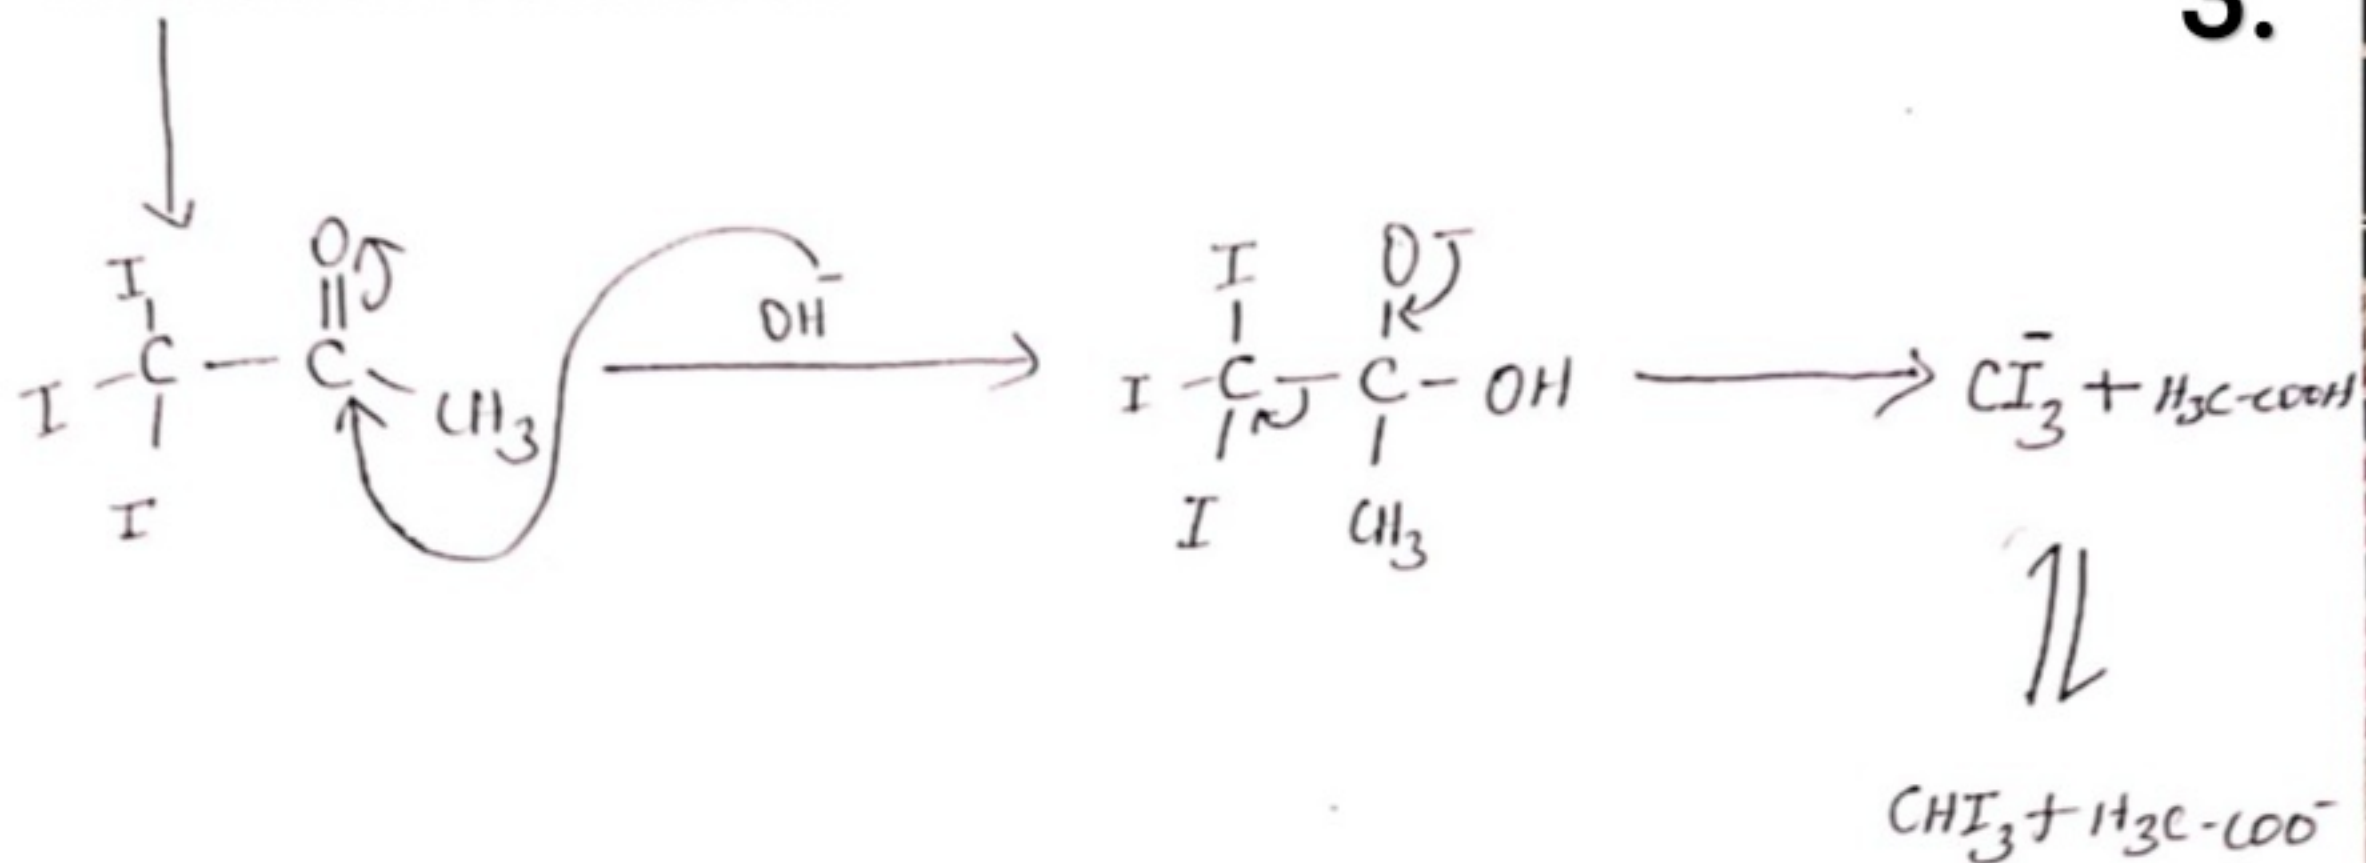 3.
I
O
I
C
C
CH3
I
OH-
I
O-
I
C
C
OH
I
CH3
CI3- + H3C-COOH
CHI3 + H3C-COO-